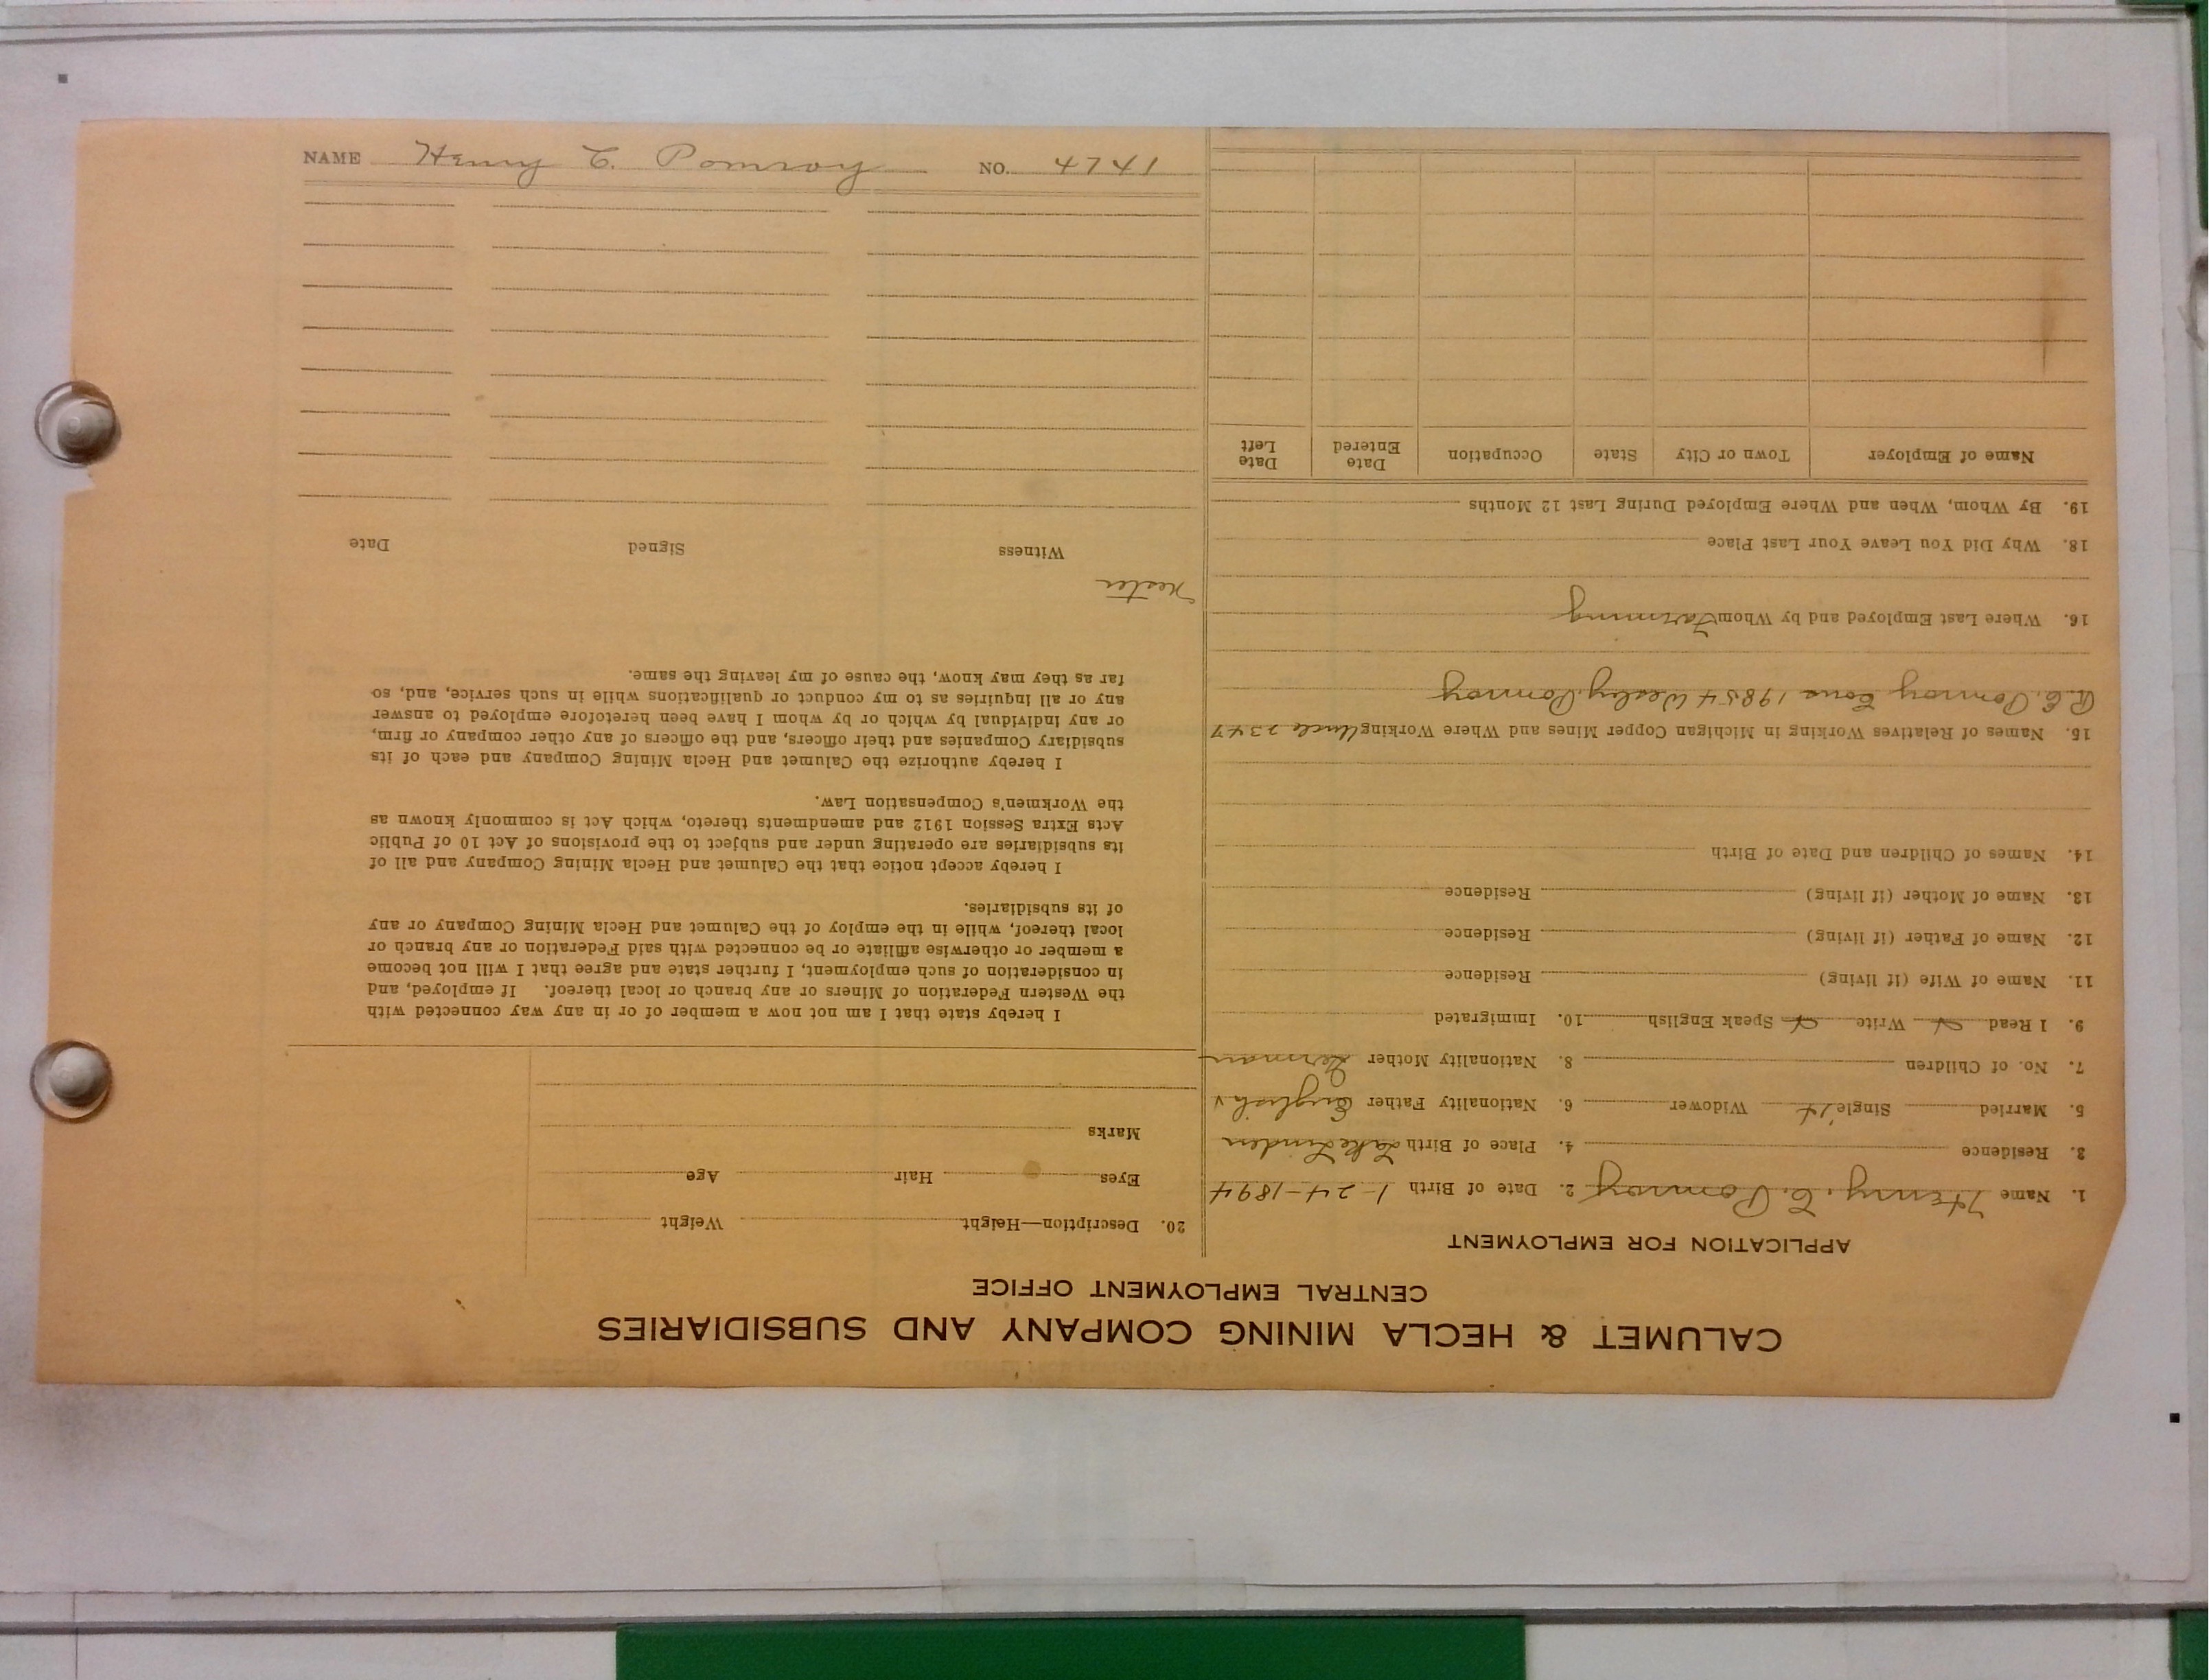 CALUMET & HECLA MINING COMPANY AND SUBSIDIARIES
CENTRAL EMPLOYMENT OFFICE
APPLICATION FOR EMPLOYMENT
1. Name Henry. C. Pomroy 2. Date of Birth 1-24-1894
3. Residence 4. Place of Birth Lake Linden
5. Married Single Widower 6. Nationality Father English
7. No. of Children 8. Nationality Mother German
9. I Read Write Speak English 10. Immigrated
11. Name of Wife (if living) Residence
12. Name of Father (if living) Residence
13. Name of Mother (if living) Residence
14. Names of Children and Date of Birth
15. Names of Relatives Working in Michigan Copper Mines and Where Working Uncle 2347
Pomroy 19854 Wesley Pomroy
16. Where Last Employed and by Whom Farming
18. Why Did You Leave Your Last Place
19. By Whom, When and Where Employed During Last 12 Months
Name of Employer Town or City State Occupation Date Entered Date Left
20. Description—Height Weight
Eyes Hair Age
Marks
I hereby state that I am not now a member of or in any way connected with
the Western Federation of Miners or any branch or local thereof. If employed, and
in consideration of such employment, I further state and agree that I will not become
a member or otherwise affiliate or be connected with said Federation or any branch or
local thereof, while in the employ of the Calumet and Hecla Mining Company or any
of its subsidiaries.
I hereby accept notice that the Calumet and Hecla Mining Company and all of
its subsidiaries are operating under and subject to the provisions of Act 10 of Public
Acts Extra Session 1912 and amendments thereto, which Act is commonly known as
the Workmen's Compensation Law.
I hereby authorize the Calumet and Hecla Mining Company and each of its
subsidiary Companies and their officers, and the officers of any other company or firm,
or any individual by which or by whom I have been heretofore employed to answer
any or all inquiries as to my conduct or qualifications while in such service, and, so
far as they may know, the cause of my leaving the same.
Witness Signed Date
NAME Henry C. Pomroy NO. 4741